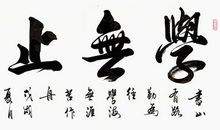 學無止
書山
有路
勤為
徑
學海
無涯
苦作
舟
戊戌
夏月